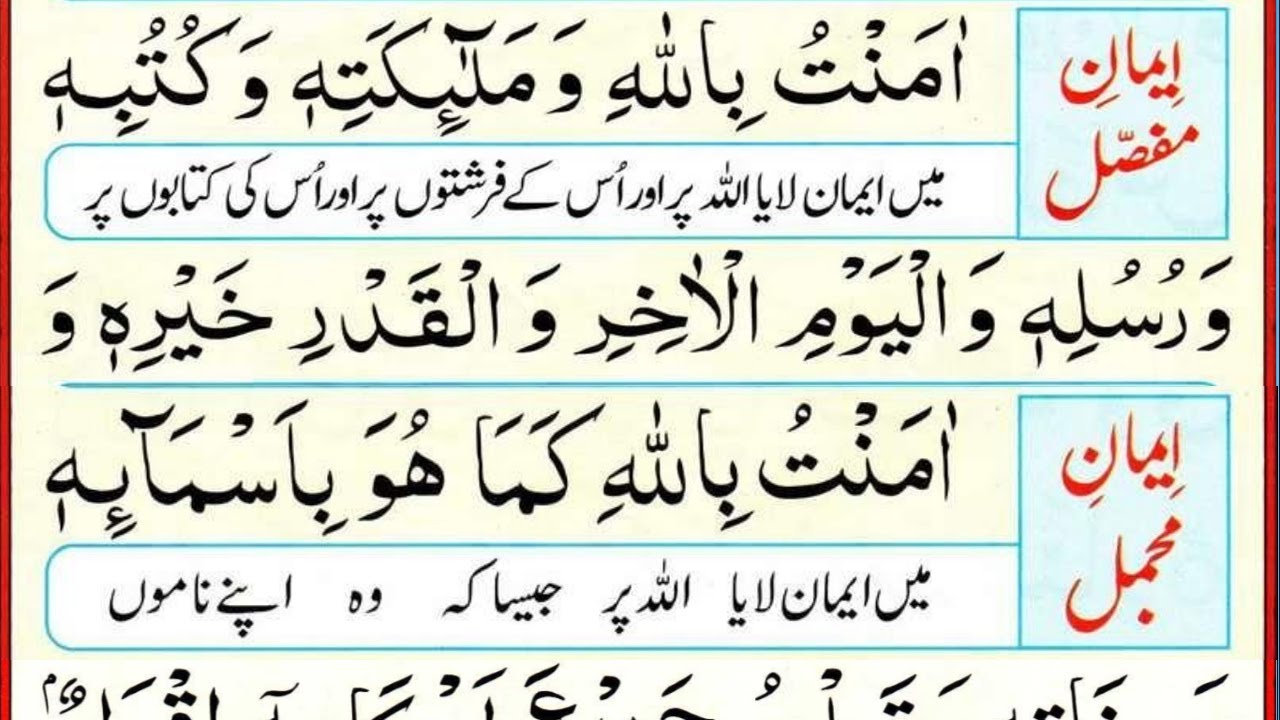 ایمانِ
مفصّل
اٰمَنْتُ بِاللّٰهِ وَ مَلٰٓئِكَتِهٖ وَ كُتُبِهٖ
میں ایمان لایا اللہ پر اور اُس کے فرشتوں پر اور اُس کی کتابوں پر
وَ رُسُلِهٖ وَ الْیَوْمِ الْاٰخِرِ وَ الْقَدْرِ خَیْرِهٖ وَ
ایمانِ
مجمل
اٰمَنْتُ بِاللّٰهِ كَمَا هُوَ بِاَسْمَآئِهٖ
میں ایمان لایا اللہ پر جیسا کہ وہ اپنے ناموں